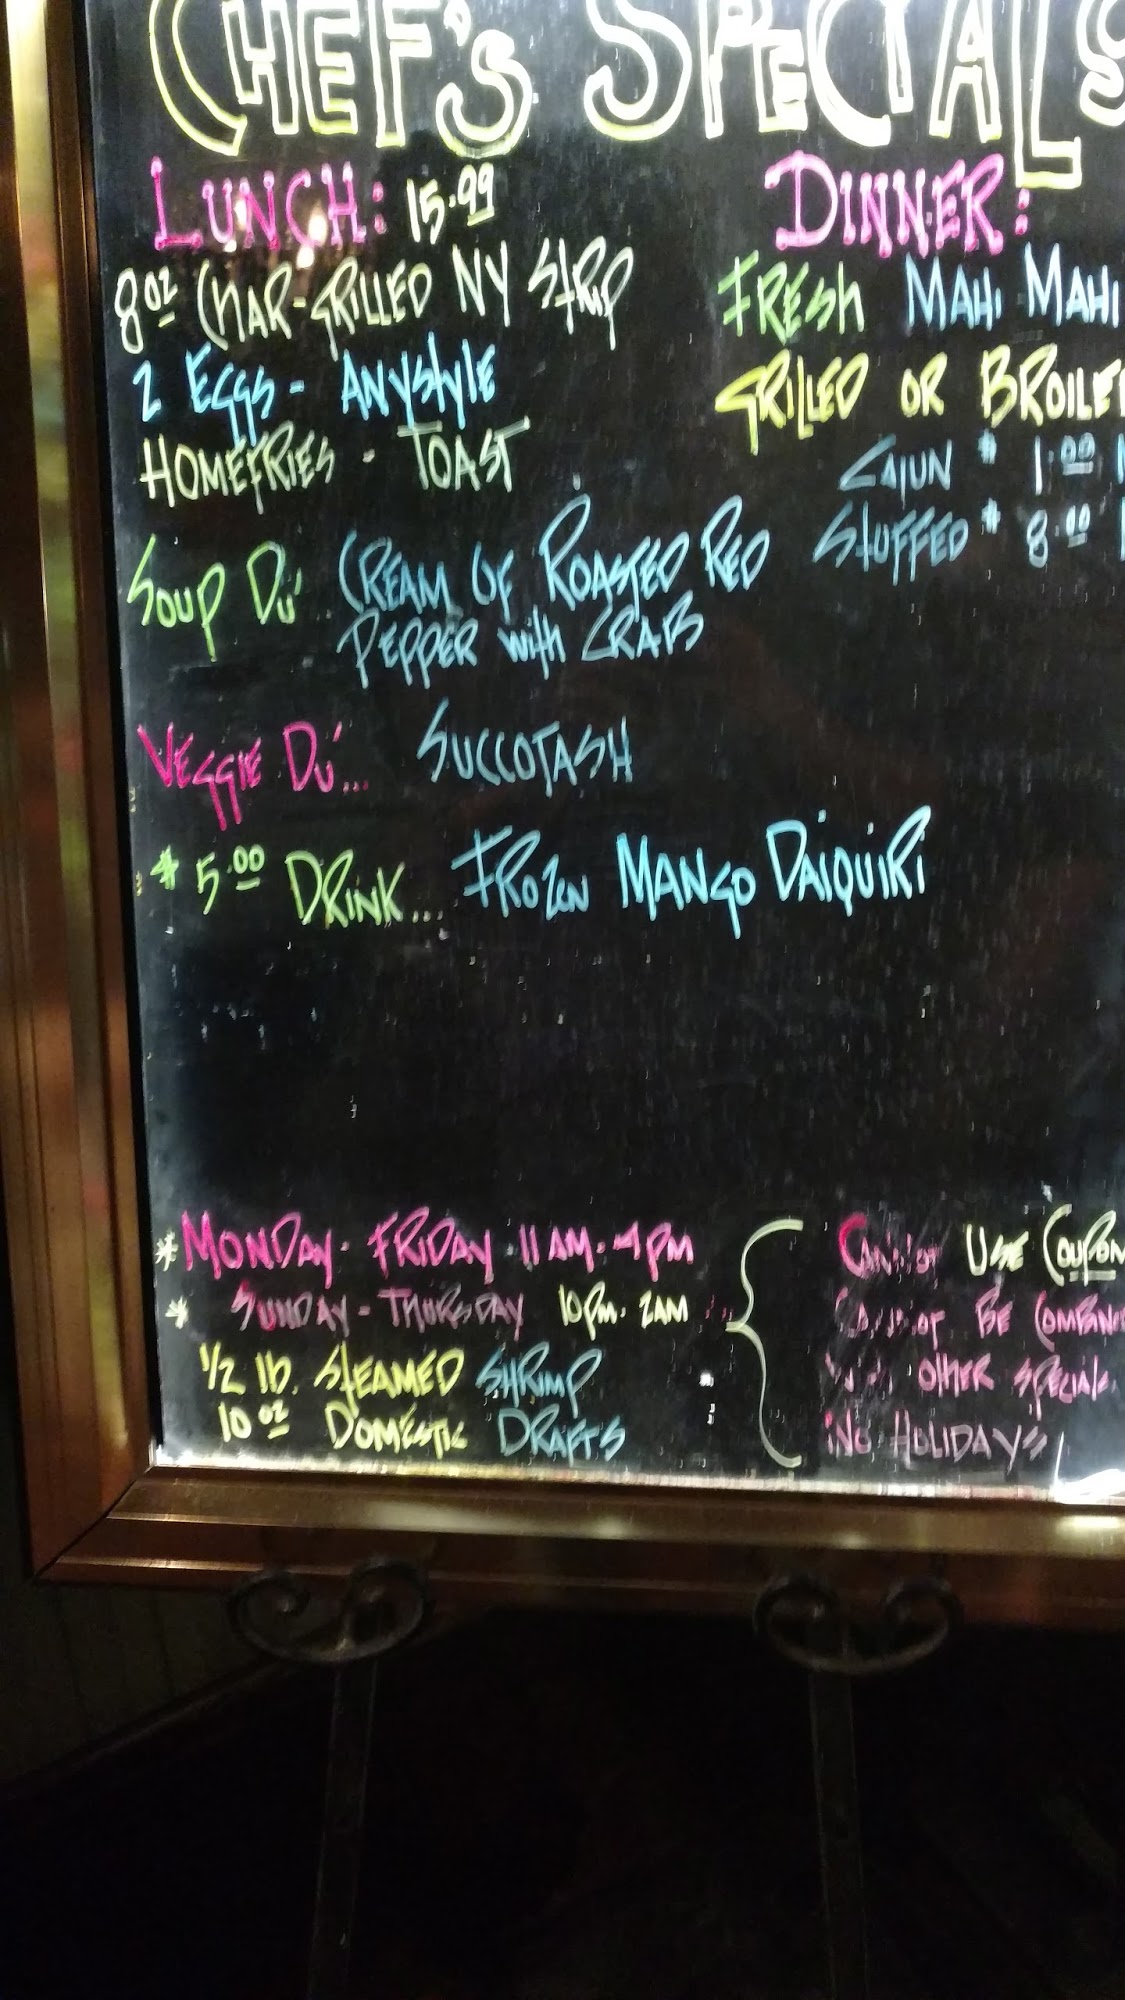 CHEF'S SPECIALS
LUNCH: 15.99
8oz CHAR-GRILLED NY STRIP
2 EGGS - ANYSTYLE
HOMEFRIES - TOAST
DINNER:
FRESH MAHI MAHI
GRILLED OR BROILED
CAJUN $ 1.00
STUFFED $ 8.00
SOUP DU' .. CREAM OF ROASTED RED
PEPPER with CRAB
VEGGIE DU'... SUCCOTASH
$ 5.00 DRINK... FROZEN MANGO DAIQUIRI
* MONDAY - FRIDAY 11 AM - 4 PM
* SUNDAY - THURSDAY 10PM - 2AM
1/2 lb. STEAMED SHRIMP
10 oz DOMESTIC DRAFTS
CANNOT USE COUPON
CANNOT BE COMBINED
OTHER SPECIALS
NO HOLIDAYS